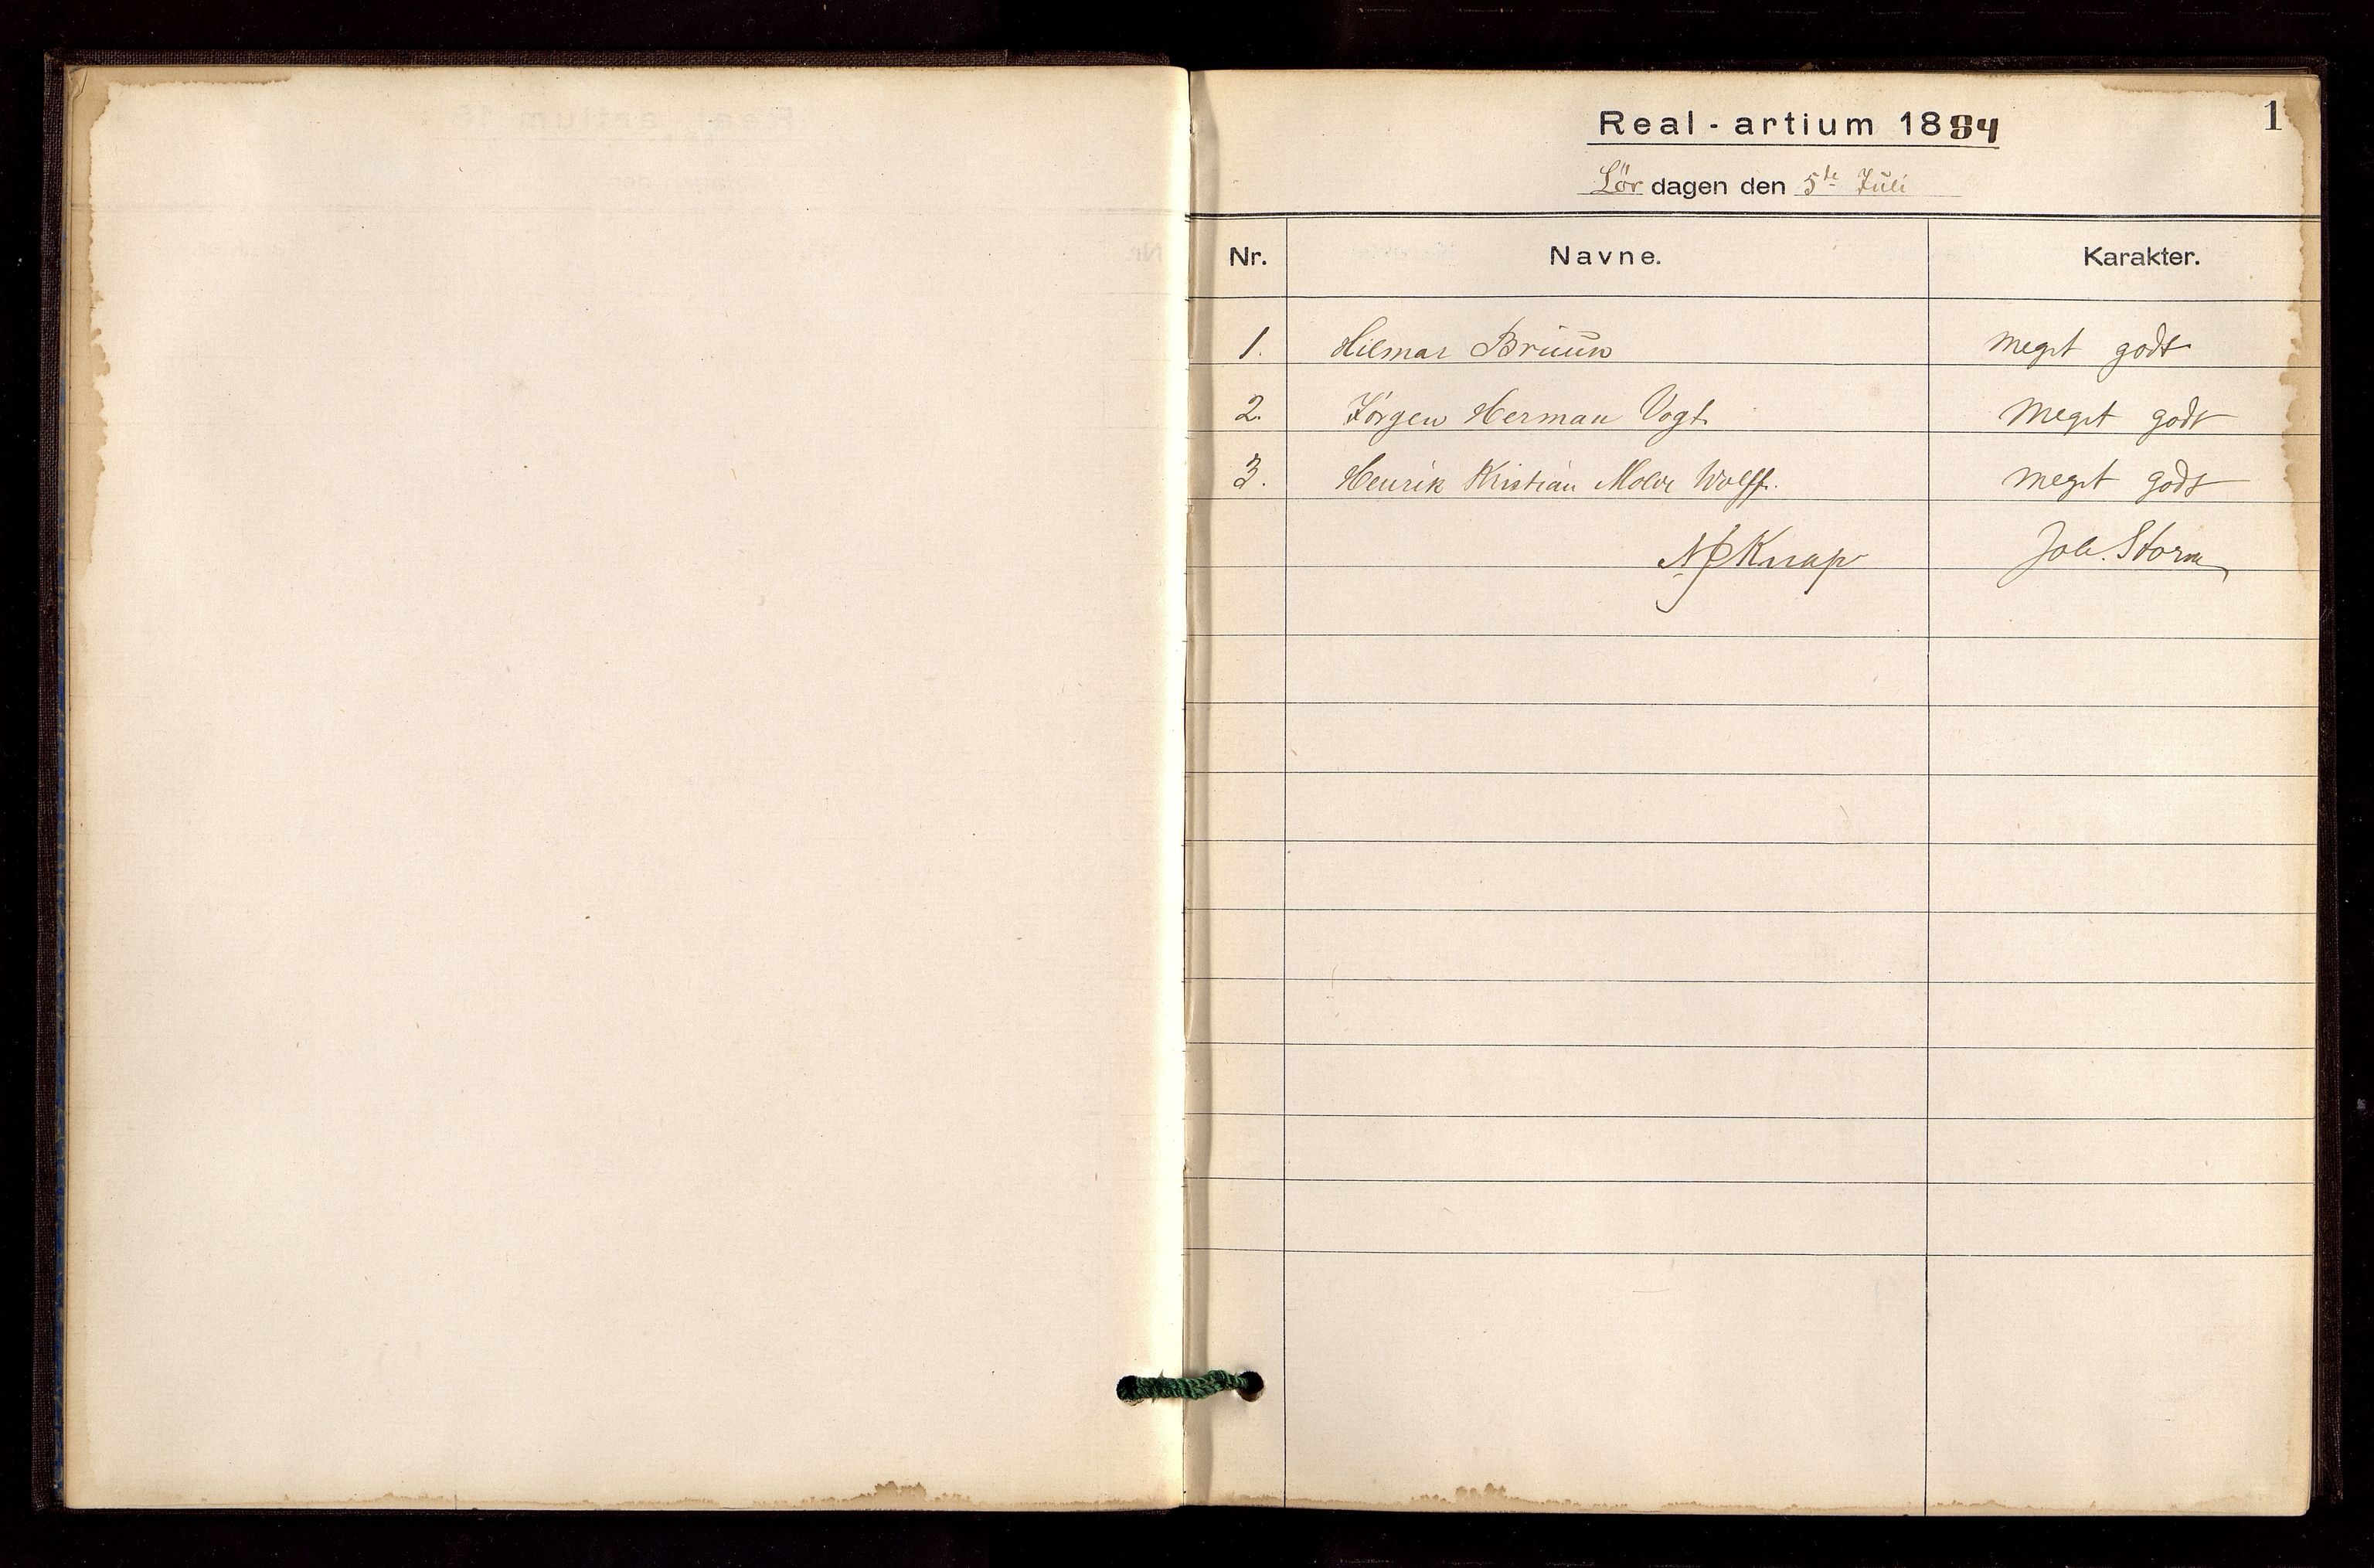 1
Real-artium 1884
Lördagen den 5te Juli
Nr. Navne. Karakter.
1. Hilmar Bruun meget godt
2. Jörgen Herman Vogt. meget godt
3. Henrik Kristian Wolff. meget godt
Knap Joh. Storm